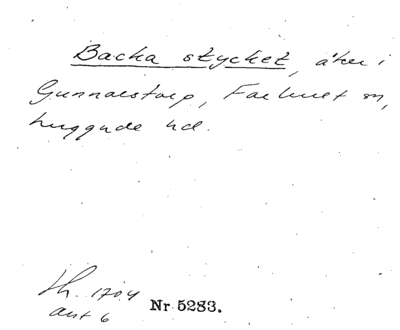 Backa stycket, åker i
Gunnarstorp, Farhult sn,
Luggude hd.
Lh. 1704
akt 6 Nr 5283.